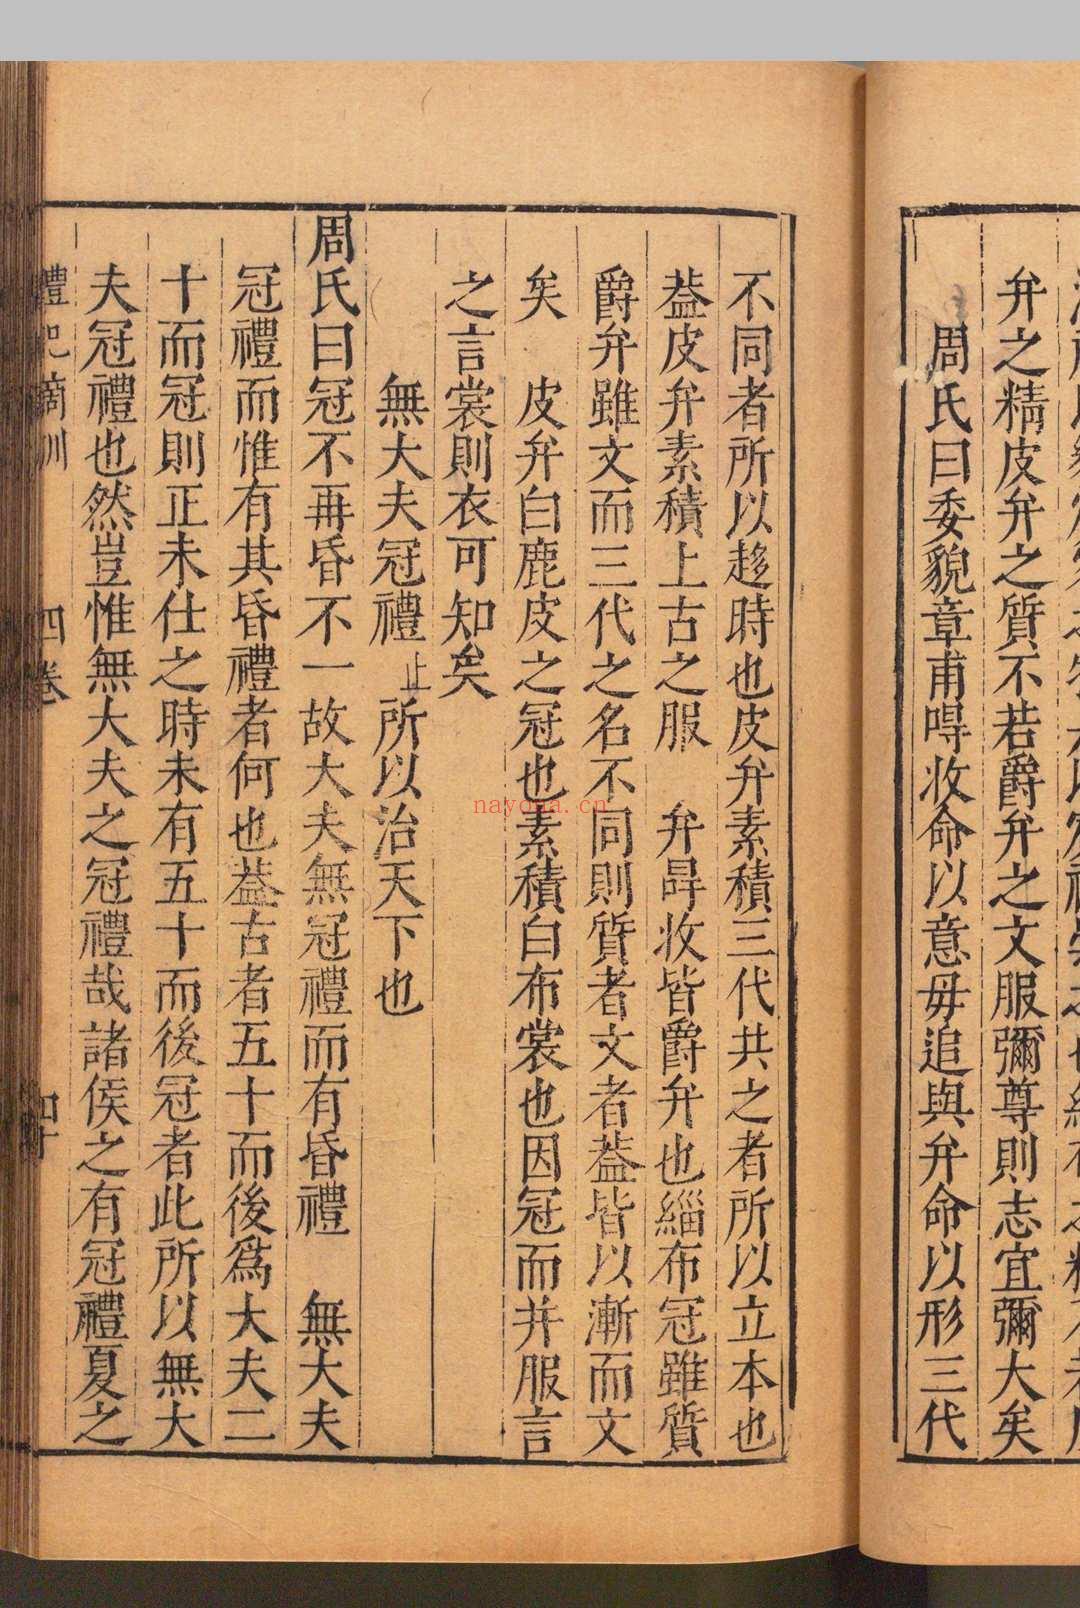 弁之精皮弁之質不若爵弁之文服彌尊則志宜彌大矣
周氏曰委貌章甫㖡收命以意毋追與弁命以形三代
不同者所以趍時也皮弁素積三代共之者所以立本也
葢皮弁素積上古之服　弁冔收皆爵弁也緇布冠雖質
爵弁雖文而三代之名不同則質者文者葢皆以漸而文
矣　皮弁白鹿皮之冠也素積白布裳也因冠而并服言
之言裳則衣可知矣
無大夫冠禮止所以治天下也
周氏曰冠不再昏不一故大夫無冠禮而有昏禮　無大夫
冠禮而惟有其昏禮者何也葢古者五十而後爲大夫二
十而冠則正未仕之時未有五十而後冠者此所以無大
夫冠禮也然豈惟無大夫之冠禮哉諸侯之有冠禮夏之
四卷
nayona.cn